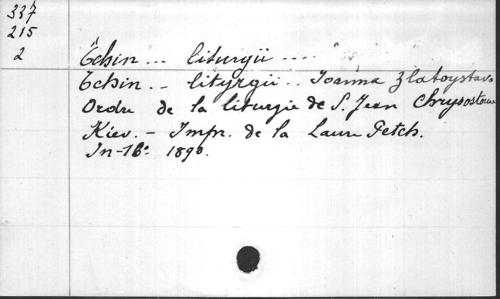 337
215
2
Tchin ... liturgii ....
Tchin ... lityrgii .. Ioanna Zlatoystavo
Ordre de la liturgie de S. Jean Chrysostome
Kiev. - Impr. de la Laure Petch.
In-16º 1890.